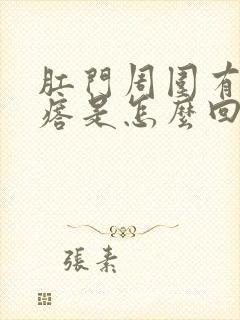 肛門周圍有
痞是怎麼回
張素